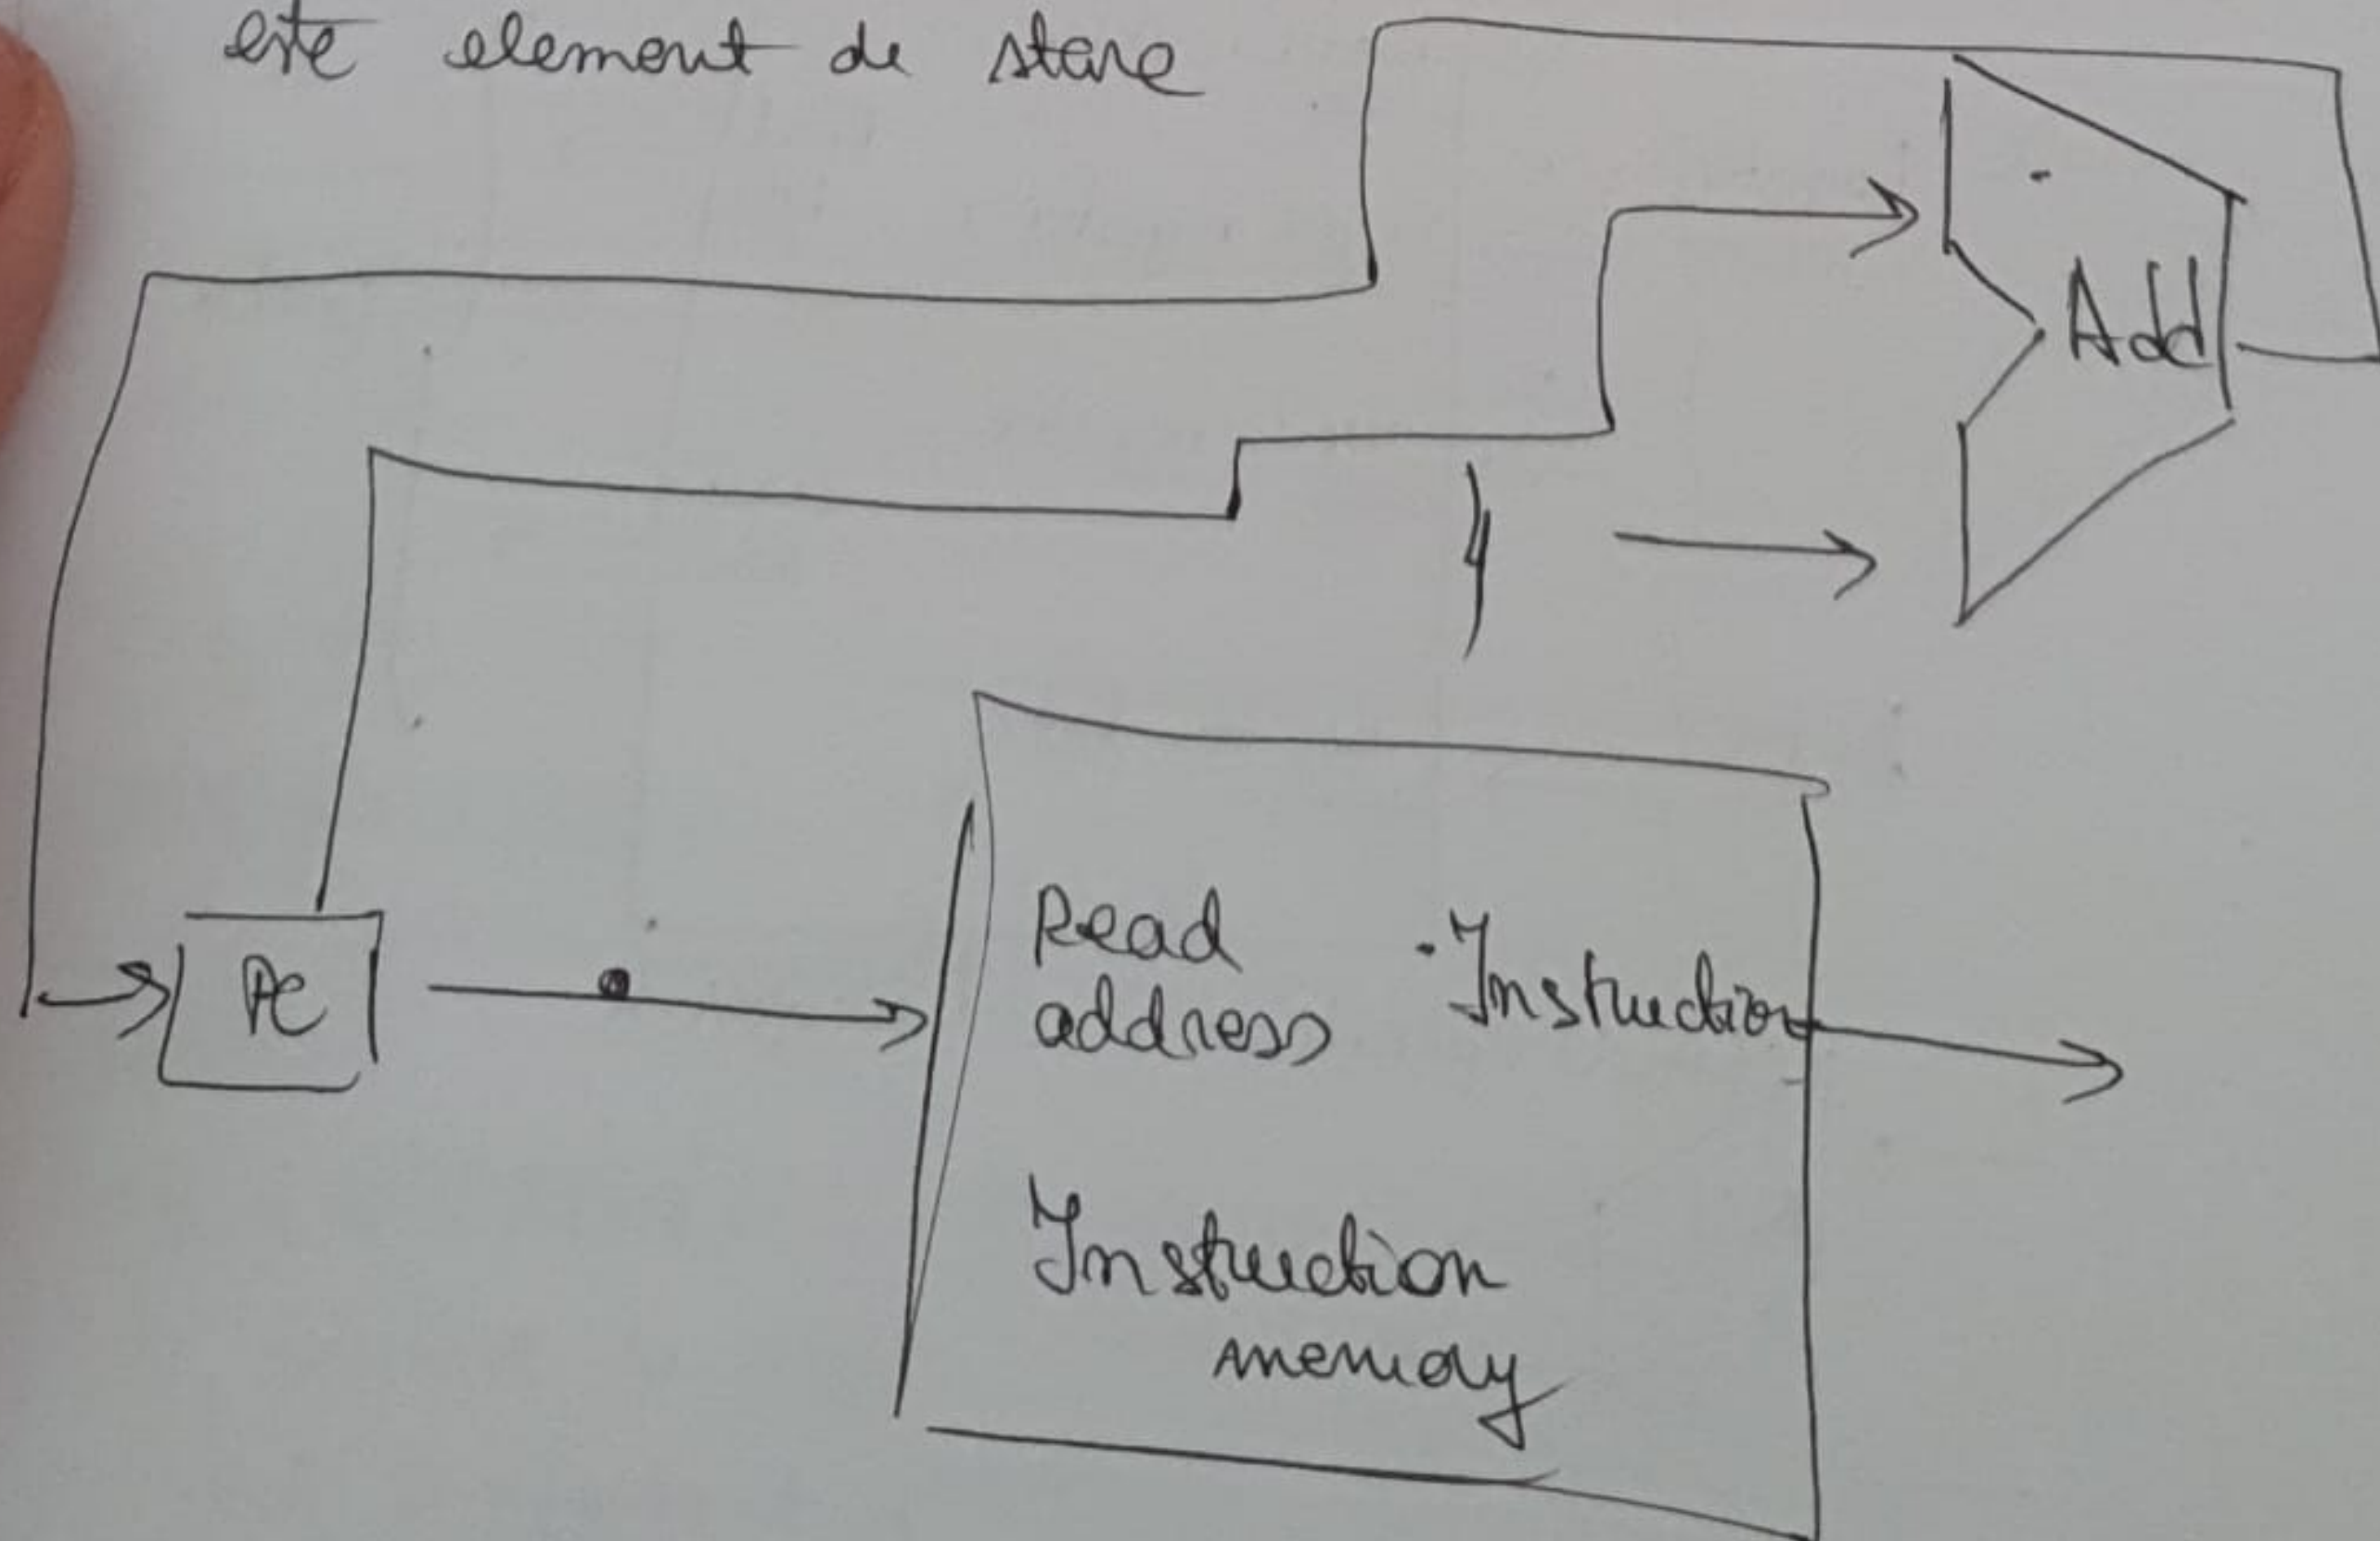 este element de stare
Add
4
PC
Read
address
Instruction
Instruction
memory